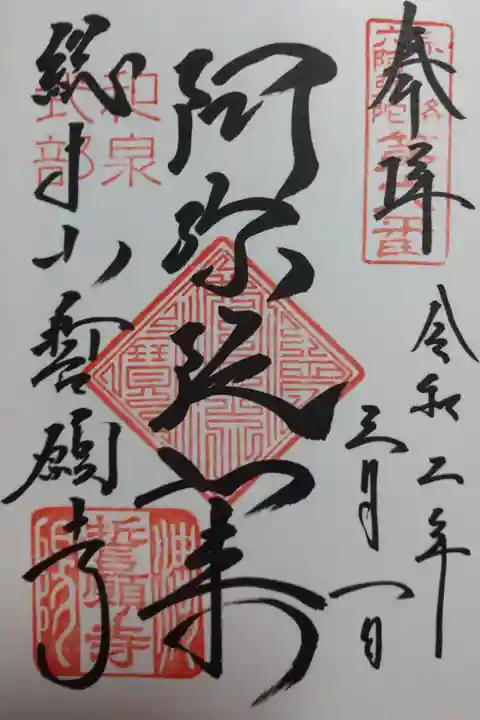 奉拝
令和二年
三月一日
阿弥陀如来
和泉
式部
総本山誓願寺
誓願寺